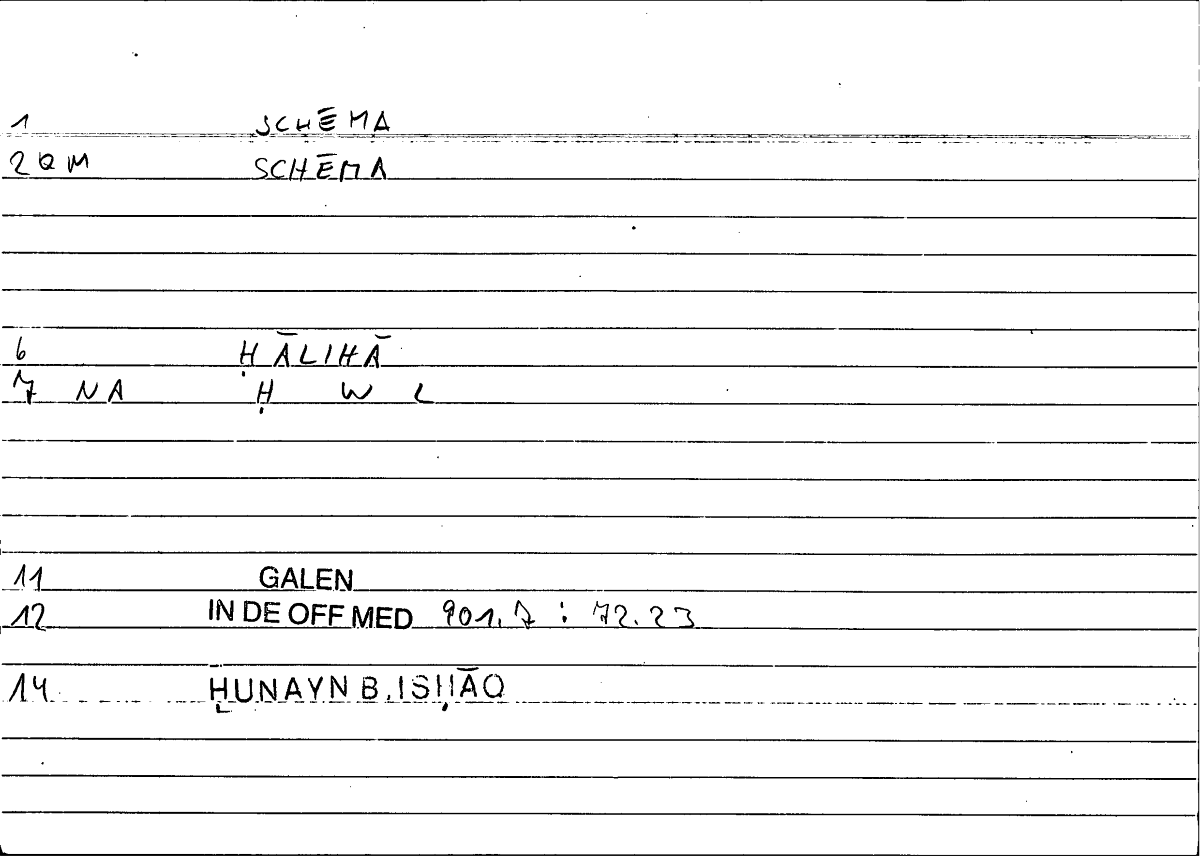 1 SCHĒMA
2 Q M SCHĒMA
6 ḤĀLIHĀ
7 NA Ḥ W L
11 GALEN
12 IN DE OFF MED 901.7 : 72.23
14 ḤUNAYN B.ISḤĀQ